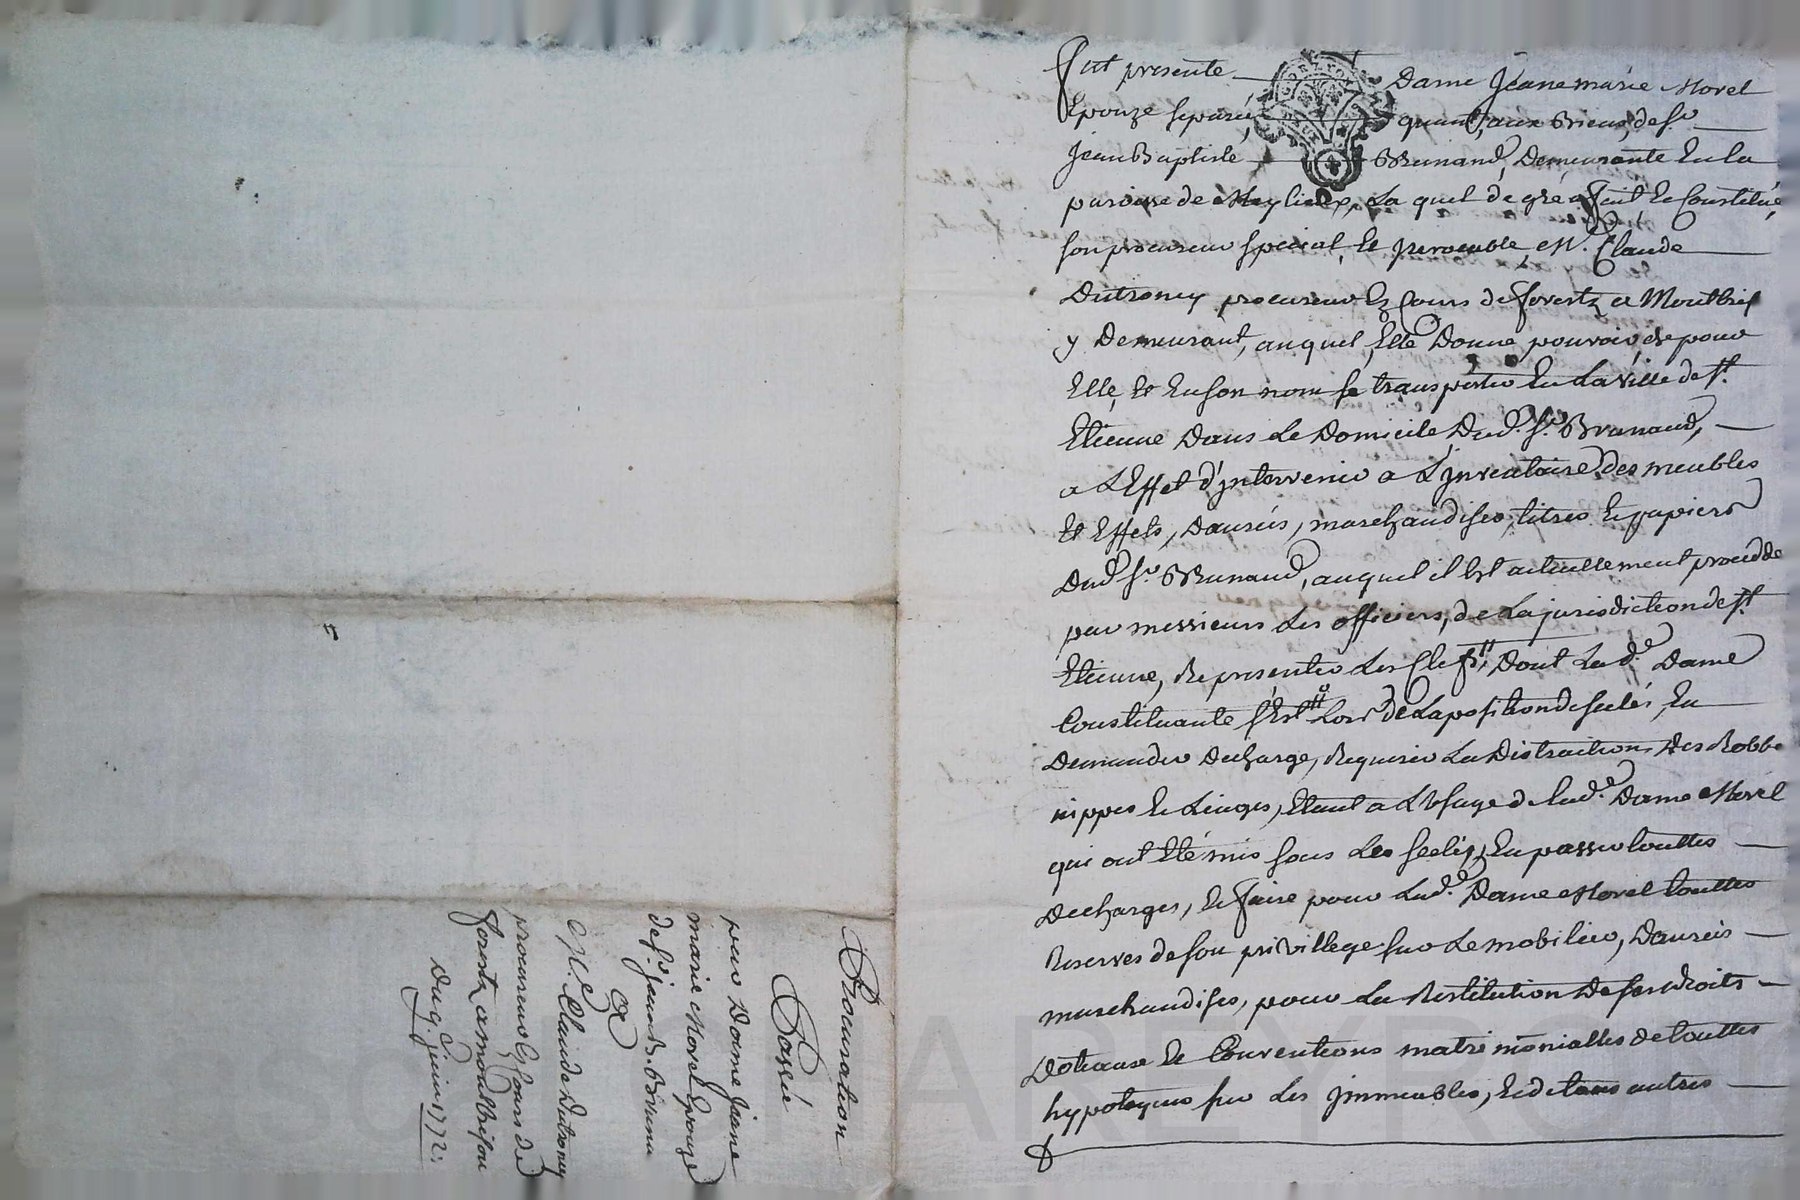 fut presente Dame Jeanemarie Morel
Epouze separée quant aux Biens, de Sr
Jean Baptiste Brunand, Demeurante En la
paroisse de Meylieu, La quel de gré a fait Et Constitué
son procureur special, Et jrrevocable, Me. Claude
Dutroncy procureur Ez Cours de forestz a Montbrison
y Demeurant, auquel, Elle Donne pouvoir, de pour
Elle, Et En son nom se transporter En La ville de St.
Etienne Dans Le Domicile Dud. Sr. Brunand,
a L'Effet d'jntervenir a L'jnventaire des meubles
Et Effets, Danrées, marchandises, titres Et papiers
Dud. Sr. Brunand, auquel il Est actuellement procedde
par messieurs Les officiers, de La jurisdiction de St.
Etienne, Representer Les Clefs, Dont Lad.e Dame
Constituante s'Est Lors de Laposition de scelés, En
Demander Decharge, Requerir La Distraction Des Robbe
nippes Et Linges, Etant a L'Usage de Lad.e Dame Morel
qui ont Eté mis sous Les scelés, En passer touttes
Decharges, Et faire pour Lad.e Dame Morel touttes
Reserves de son privillege sur Le mobilier, Danrées
marchandises, pour La Restitution De ses Droits
Dotaux Et Conventions matrimonialles de touttes
hypoteques sur Les jmmeubles, Et de tous autres
Procuration
Passée
par Dame Jeane
marie Morel Epouze
de Sr. jean B. Brunand
a
Me. Claude Dutroncy
procureur Ez Cours de
forestz a montbrison
Du 9. juin 1772.